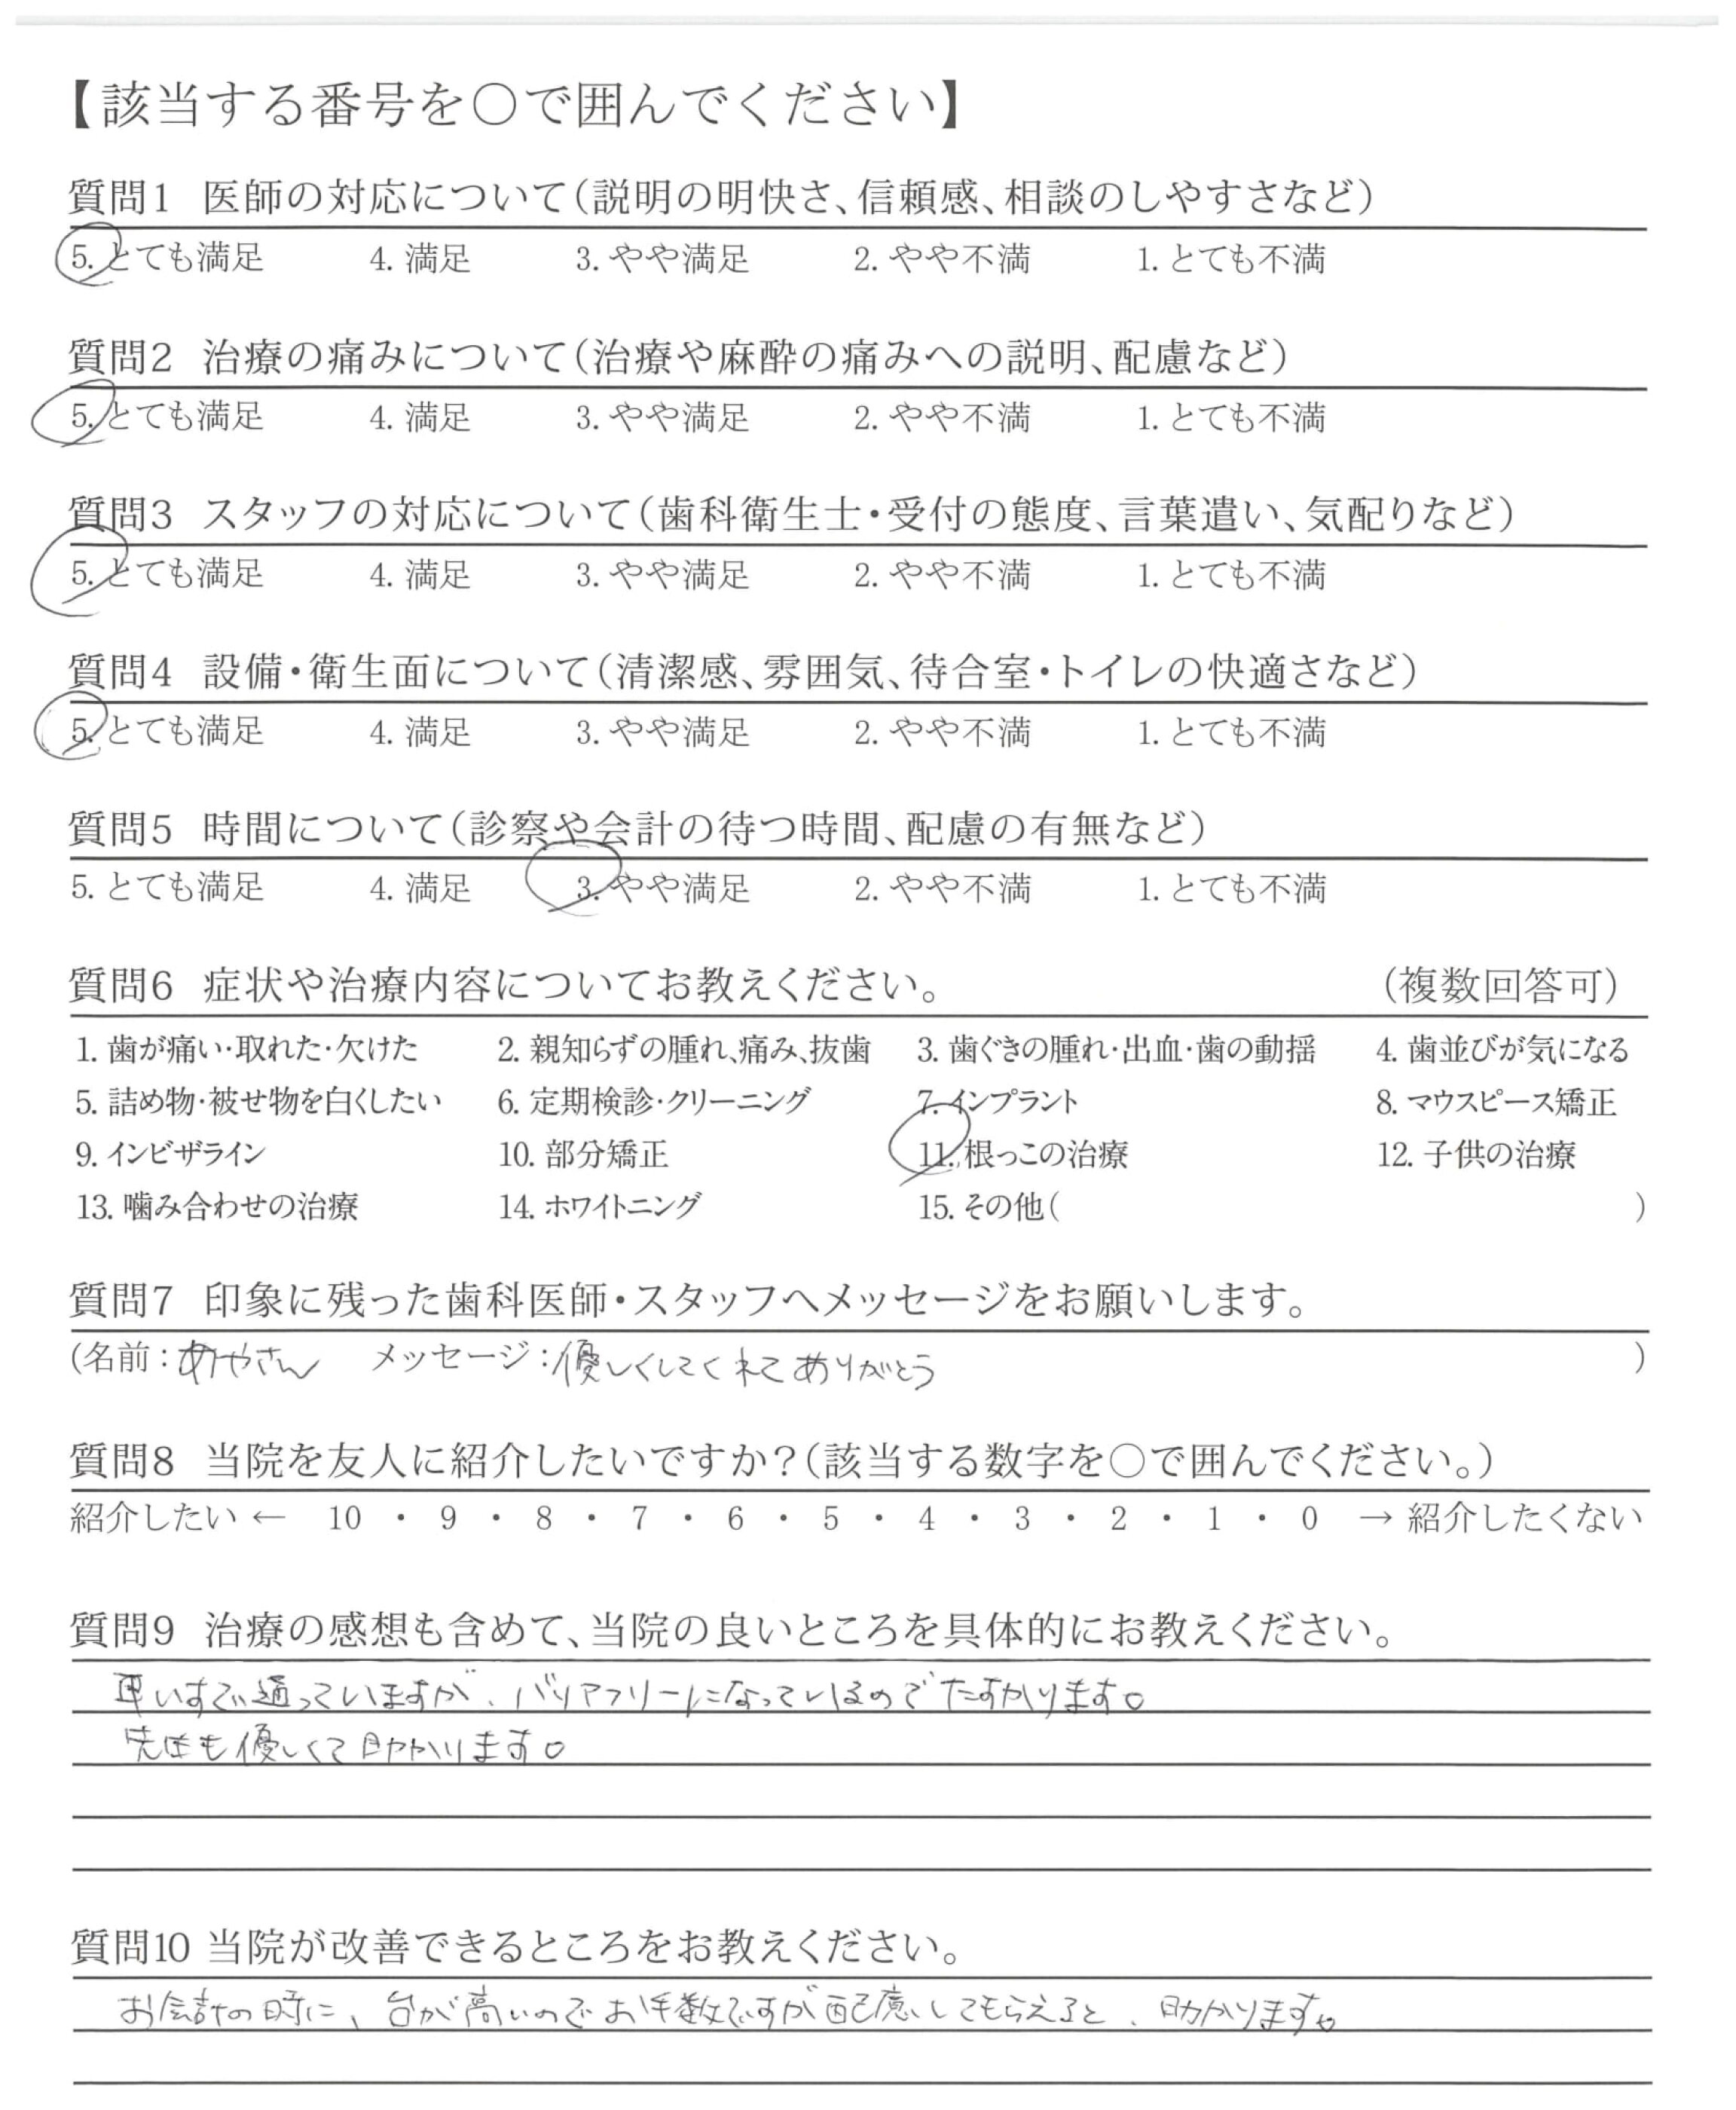 【該当する番号を〇で囲んでください】
質問1 医師の対応について(説明の明快さ、信頼感、相談のしやすさなど)
5. とても満足 4. 満足 3. やや満足 2. やや不満 1. とても不満
質問2 治療の痛みについて(治療や麻酔の痛みへの説明、配慮など)
5. とても満足 4. 満足 3. やや満足 2. やや不満 1. とても不満
質問3 スタッフの対応について(歯科衛生士・受付の態度、言葉遣い、気配りなど)
5. とても満足 4. 満足 3. やや満足 2. やや不満 1. とても不満
質問4 設備・衛生面について(清潔感、雰囲気、待合室・トイレの快適さなど)
5. とても満足 4. 満足 3. やや満足 2. やや不満 1. とても不満
質問5 時間について(診察や会計の待つ時間、配慮の有無など)
5. とても満足 4. 満足 3. やや満足 2. やや不満 1. とても不満
質問6 症状や治療内容についてお教えください。 (複数回答可)
1. 歯が痛い・取れた・欠けた 2. 親知らずの腫れ、痛み、抜歯 3. 歯ぐきの腫れ・出血・歯の動揺 4. 歯並びが気になる
5. 詰め物・被せ物を白くしたい 6. 定期検診・クリーニング 7. インプラント 8. マウスピース矯正
9. インビザライン 10. 部分矯正 11. 根っこの治療 12. 子供の治療
13. 噛み合わせの治療 14. ホワイトニング 15. その他( )
質問7 印象に残った歯科医師・スタッフへメッセージをお願いします。
(名前:あやさん メッセージ:優しくしてくれてありがとう )
質問8 当院を友人に紹介したいですか?(該当する数字を〇で囲んでください。)
紹介したい ← 10 ・ 9 ・ 8 ・ 7 ・ 6 ・ 5 ・ 4 ・ 3 ・ 2 ・ 1 ・ 0 → 紹介したくない
質問9 治療の感想も含めて、当院の良いところを具体的にお教えください。
車いすで通っていますが、バリアフリーになっているのでたすかります。
先生も優しくて助かります。
質問10 当院が改善できるところをお教えください。
お会計の時に、台が高いのでお手数ですが配慮してもらえると、助かります。